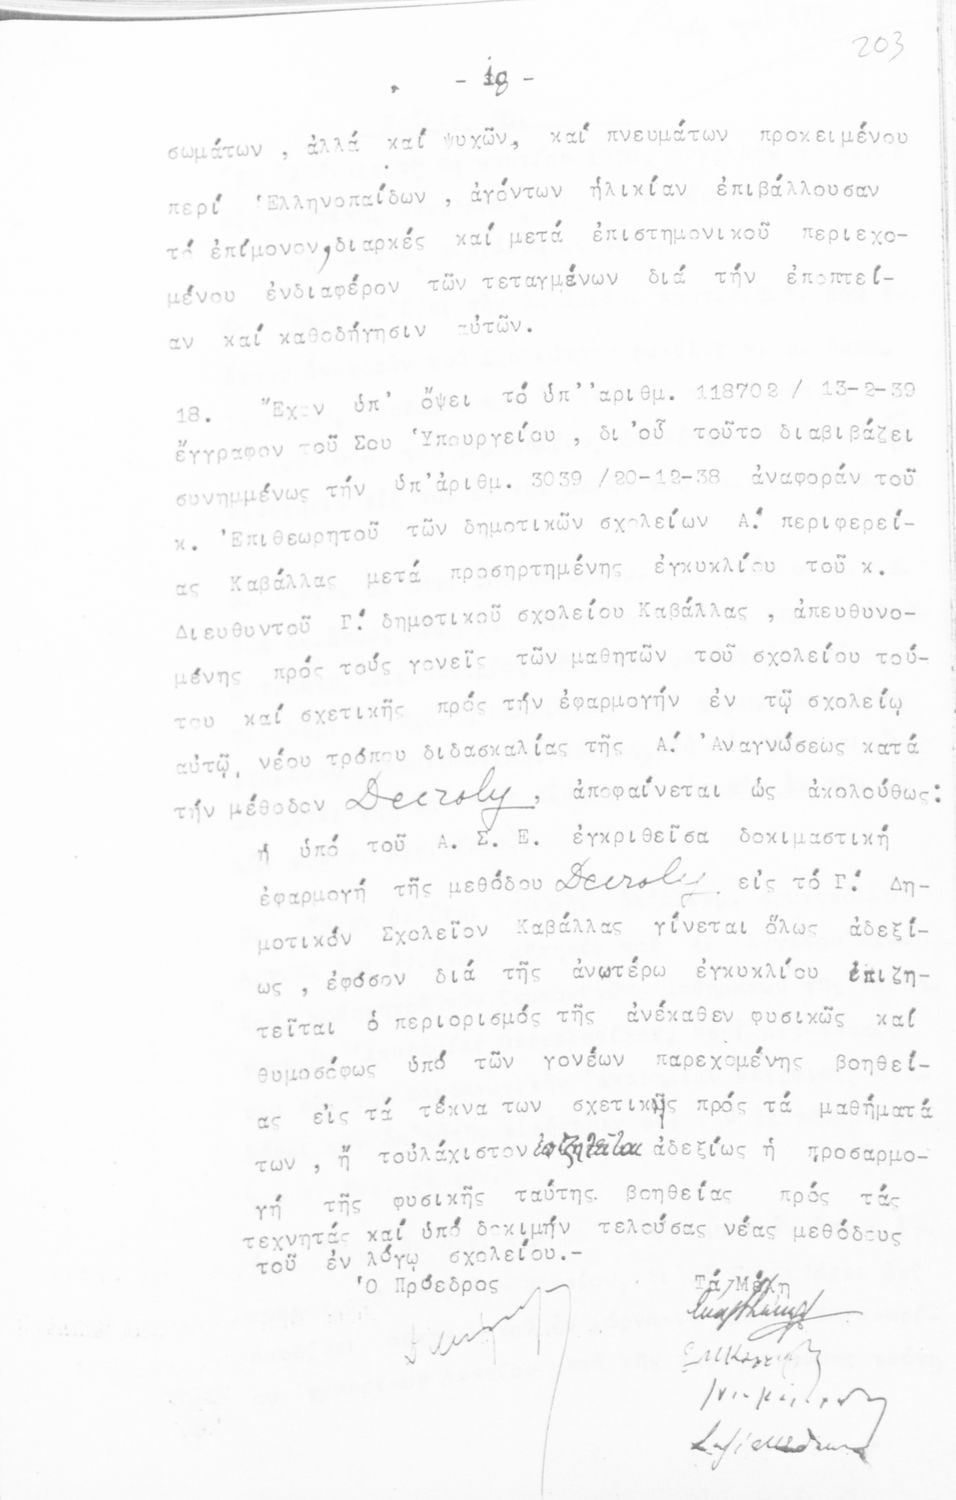 203
- 18 -
σωμάτων , ἀλλά καί ψυχῶν, καί πνευμάτων προκειμένου
περί Ἑλληνοπαίδων , ἀγόντων ἡλικίαν ἐπιβάλλουσαν
τό ἐπίμονον, διαρκές καί μετά ἐπιστημονικοῦ περιεχο-
μένου ἐνδιαφέρον τῶν τεταγμένων διά τήν ἐποπτεί-
αν καί καθοδήγησιν αὐτῶν.
18. Ἔχον ὑπ' ὄψει τό ὑπ' ἀριθμ. 118702 / 13-2-39
ἔγγραφον τοῦ Σου Ὑπουργείου , δι 'οὗ τοῦτο διαβιβάζει
συνημμένως τήν ὑπ'ἀριθμ. 3039 /20-12-38 ἀναφοράν τοῦ
κ. Ἐπιθεωρητοῦ τῶν δημοτικῶν σχολείων Α.' περιφερεί-
ας Καβάλλας μετά προσηρτημένης ἐγκυκλίου τοῦ κ.
Διευθυντοῦ Γ.' δημοτικοῦ σχολείου Καβάλλας , ἀπευθυνο-
μένης πρός τούς γονεῖς τῶν μαθητῶν τοῦ σχολείου τού-
του καί σχετικῆς πρός τήν ἐφαρμογήν ἐν τῷ σχολείῳ
αὐτῷ, νέου τρόπου διδασκαλίας τῆς Α.' Ἀναγνώσεως κατά
τήν μέθοδον Decroly, ἀποφαίνεται ὡς ἀκολούθως:
ἡ ὑπό τοῦ Α. Σ. Ε. ἐγκριθεῖσα δοκιμαστική
ἐφαρμογή τῆς μεθόδου Decroly εἰς τό Γ.' Δη-
μοτικόν Σχολεῖον Καβάλλας γίνεται ὅλως ἀδεξί-
ως , ἐφόσον διά τῆς ἀνωτέρω ἐγκυκλίου ἐπιζη-
τεῖται ὁ περιορισμός τῆς ἀνέκαθεν φυσικῶς καί
θυμοσόφως ὑπό τῶν γονέων παρεχομένης βοηθεί-
ας εἰς τά τέκνα των σχετικῆς πρός τά μαθήματά
των , ἤ τοὐλάχιστον ἐπιζητεῖται ἀδεξίως ἡ προσαρμο-
γή τῆς φυσικῆς ταύτης βοηθείας πρός τάς
τεχνητάς καί ὑπό δοκιμήν τελούσας νέας μεθόδους
τοῦ ἐν λόγῳ σχολείου.-
Ὁ Πρόεδρος Τά Μέλη